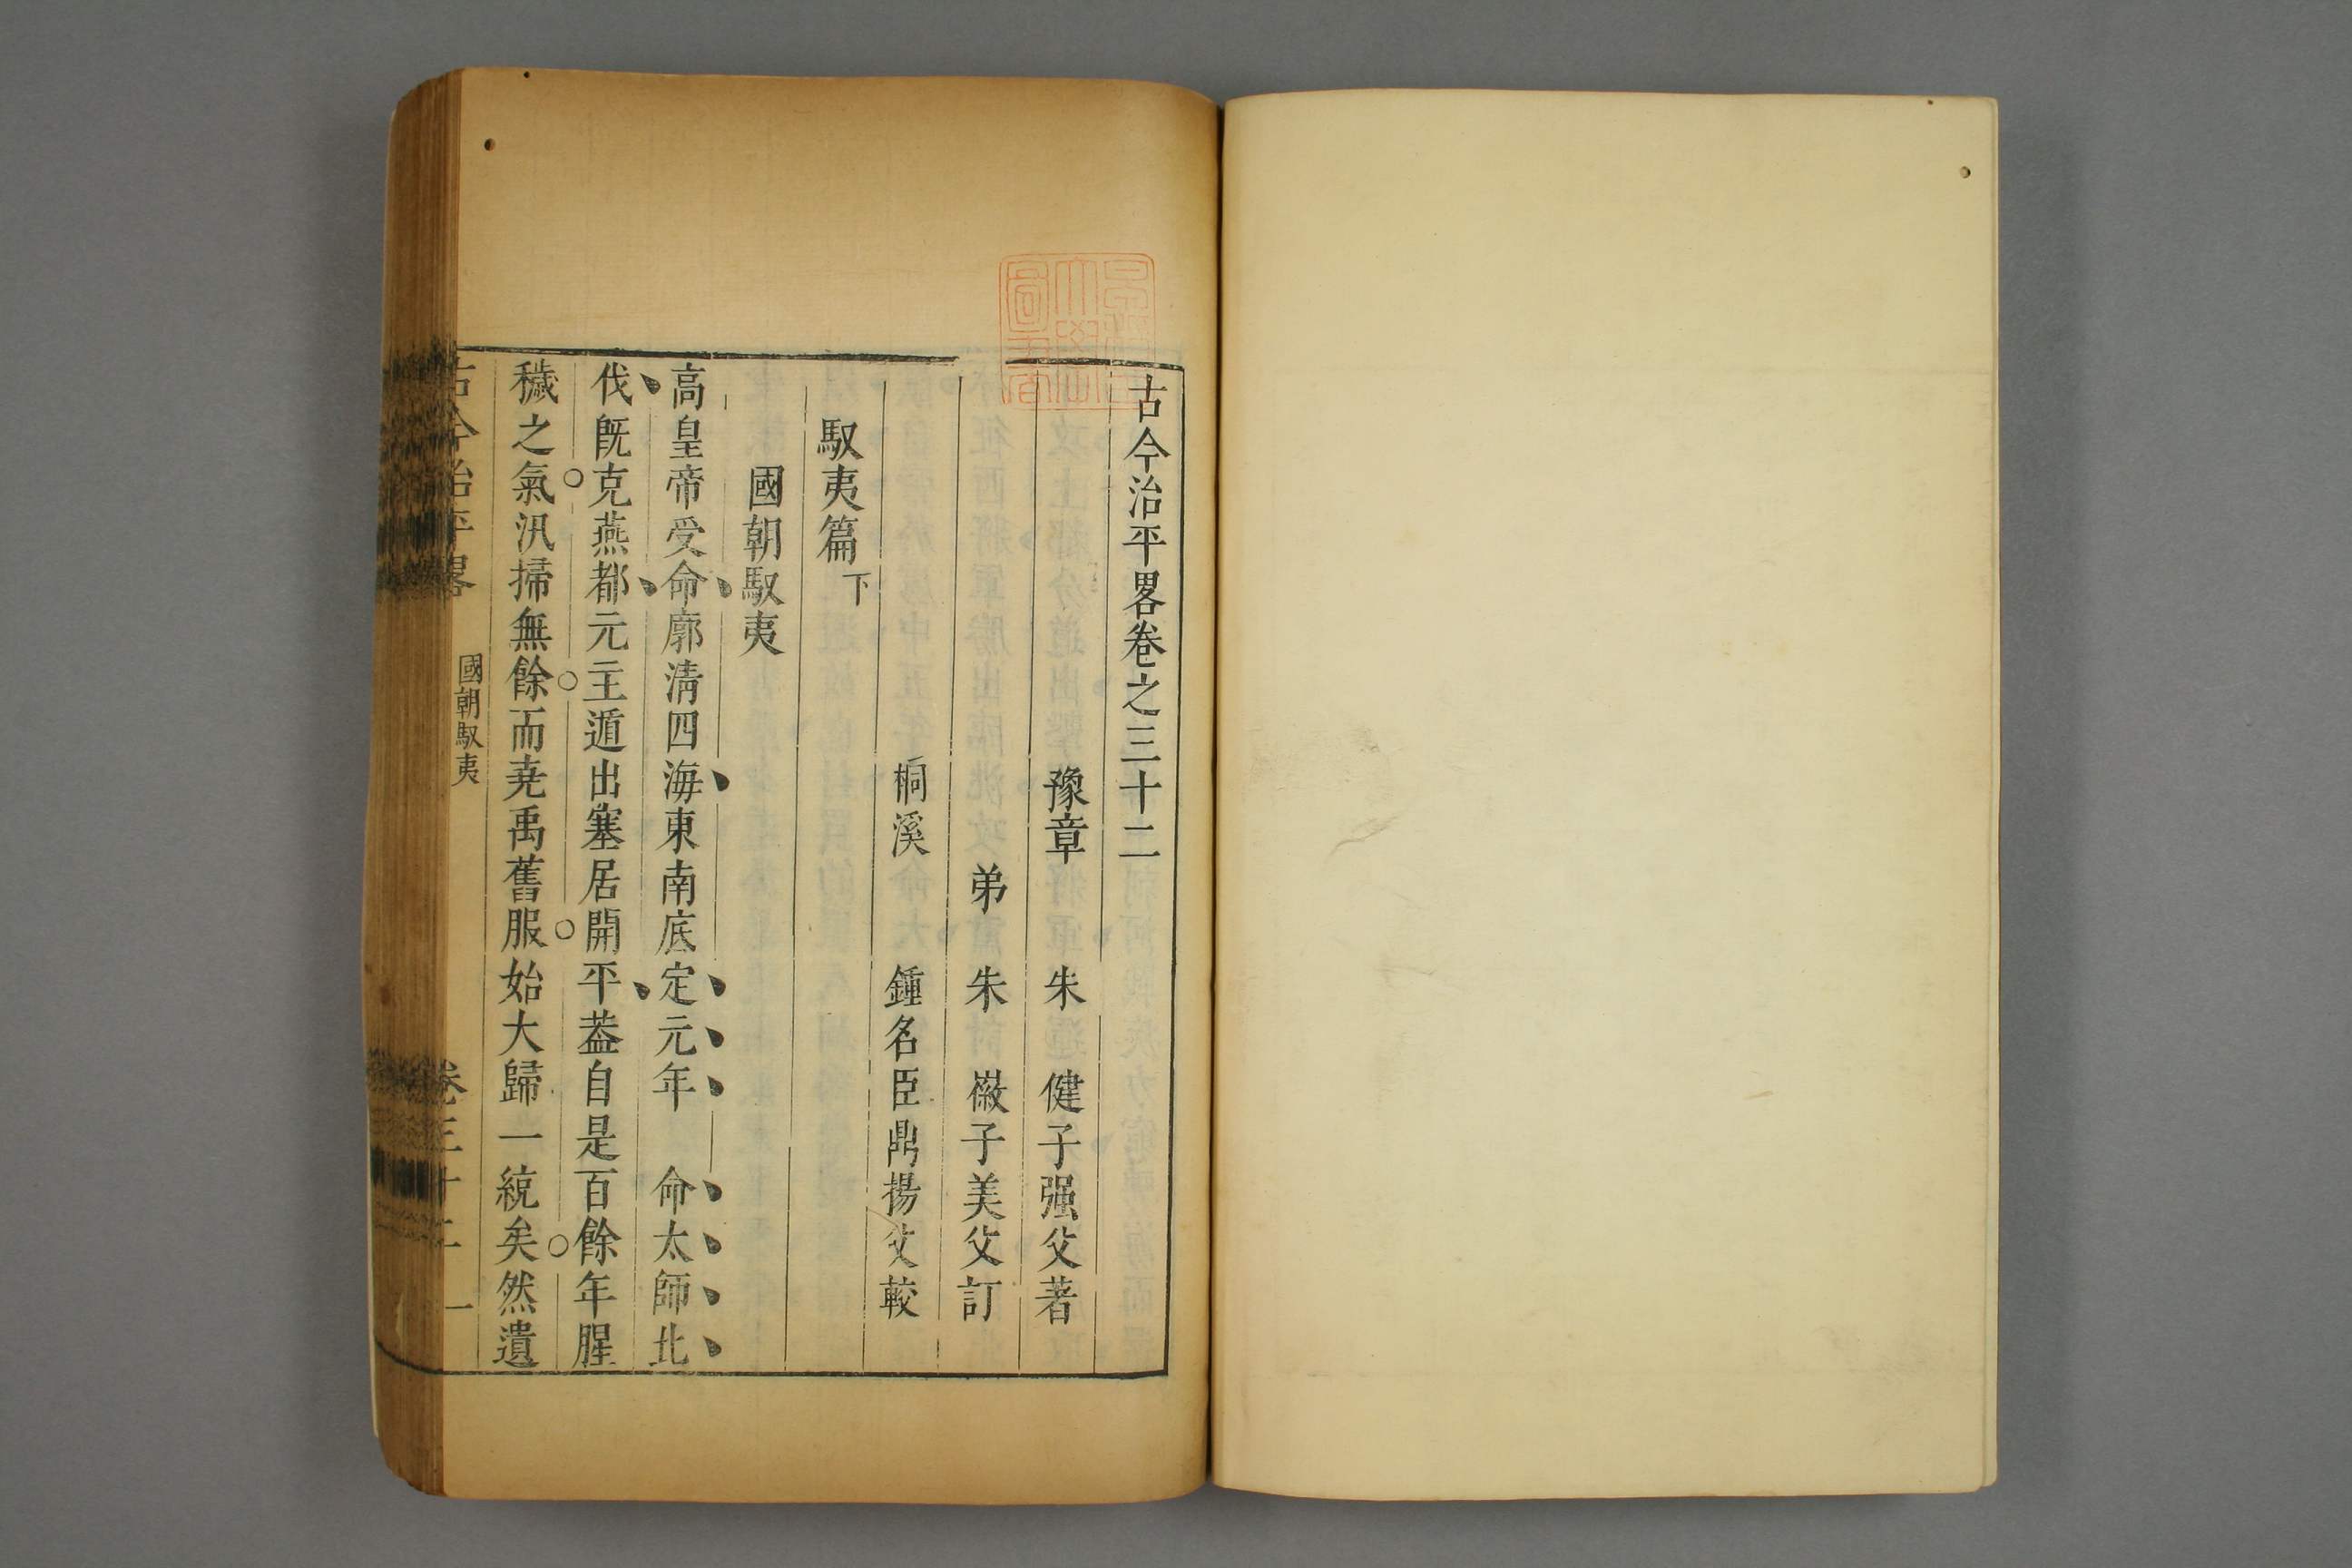 古今治平畧卷之三十二
豫章 朱 健子强父著
弟 朱 徽子美父訂
桐溪 鍾名臣鼎揚父較
馭夷篇下
國朝馭夷
高皇帝受命廓淸四海東南底定元年 命太師北
伐既克燕都元主遁出塞居開平葢自是百餘年腥
穢之氣汛掃無餘而尭禹舊服始大歸一統矣然遺
古今治平畧 國朝馭夷 卷三十二 一